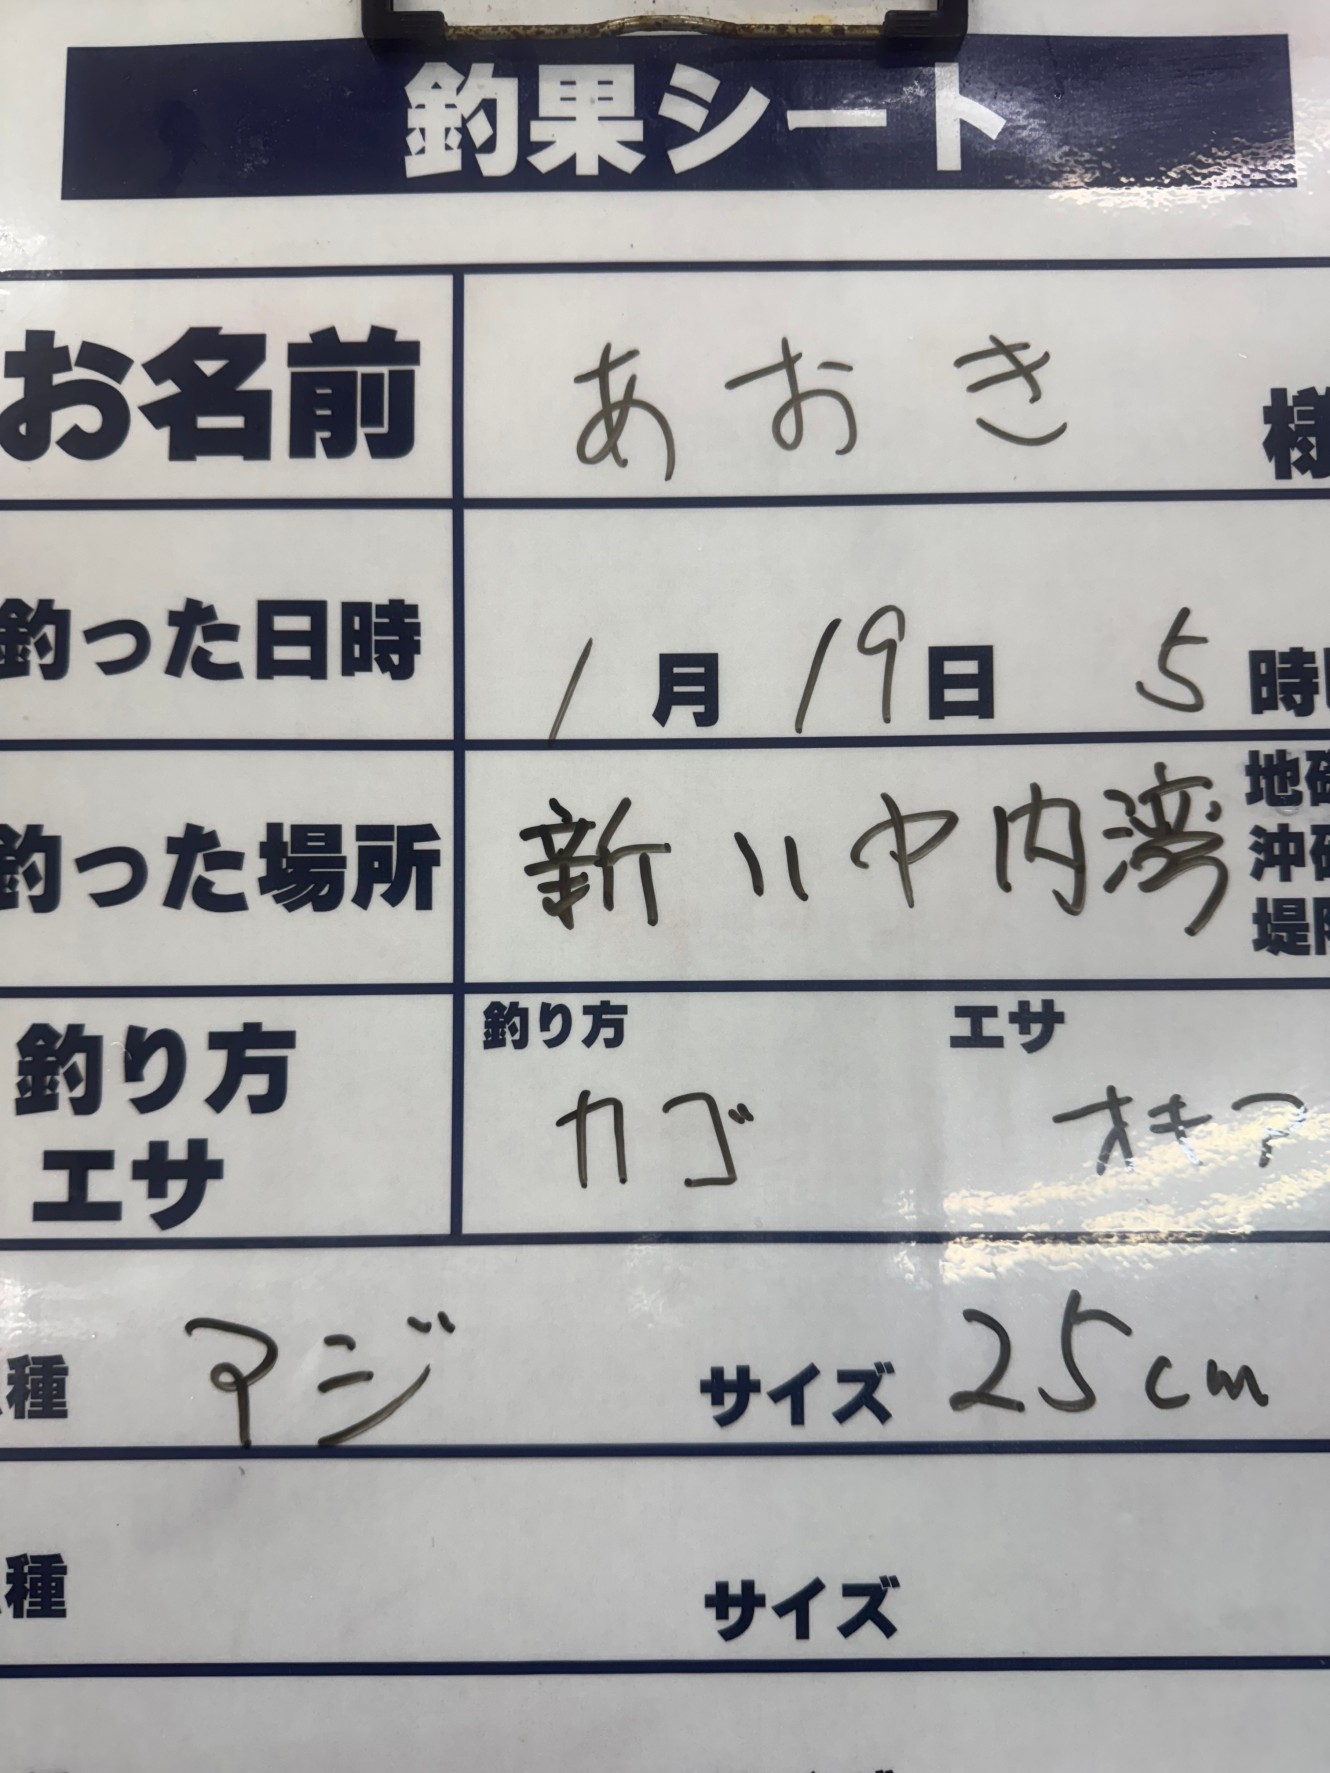 釣果シート
お名前 あおき 様
釣った日時 1月19日 5時
釣った場所 新川中内湾
地磯
沖磯
堤防
釣り方
エサ
釣り方 カゴ
エサ オキア
種 アジ サイズ 25cm
種 サイズ